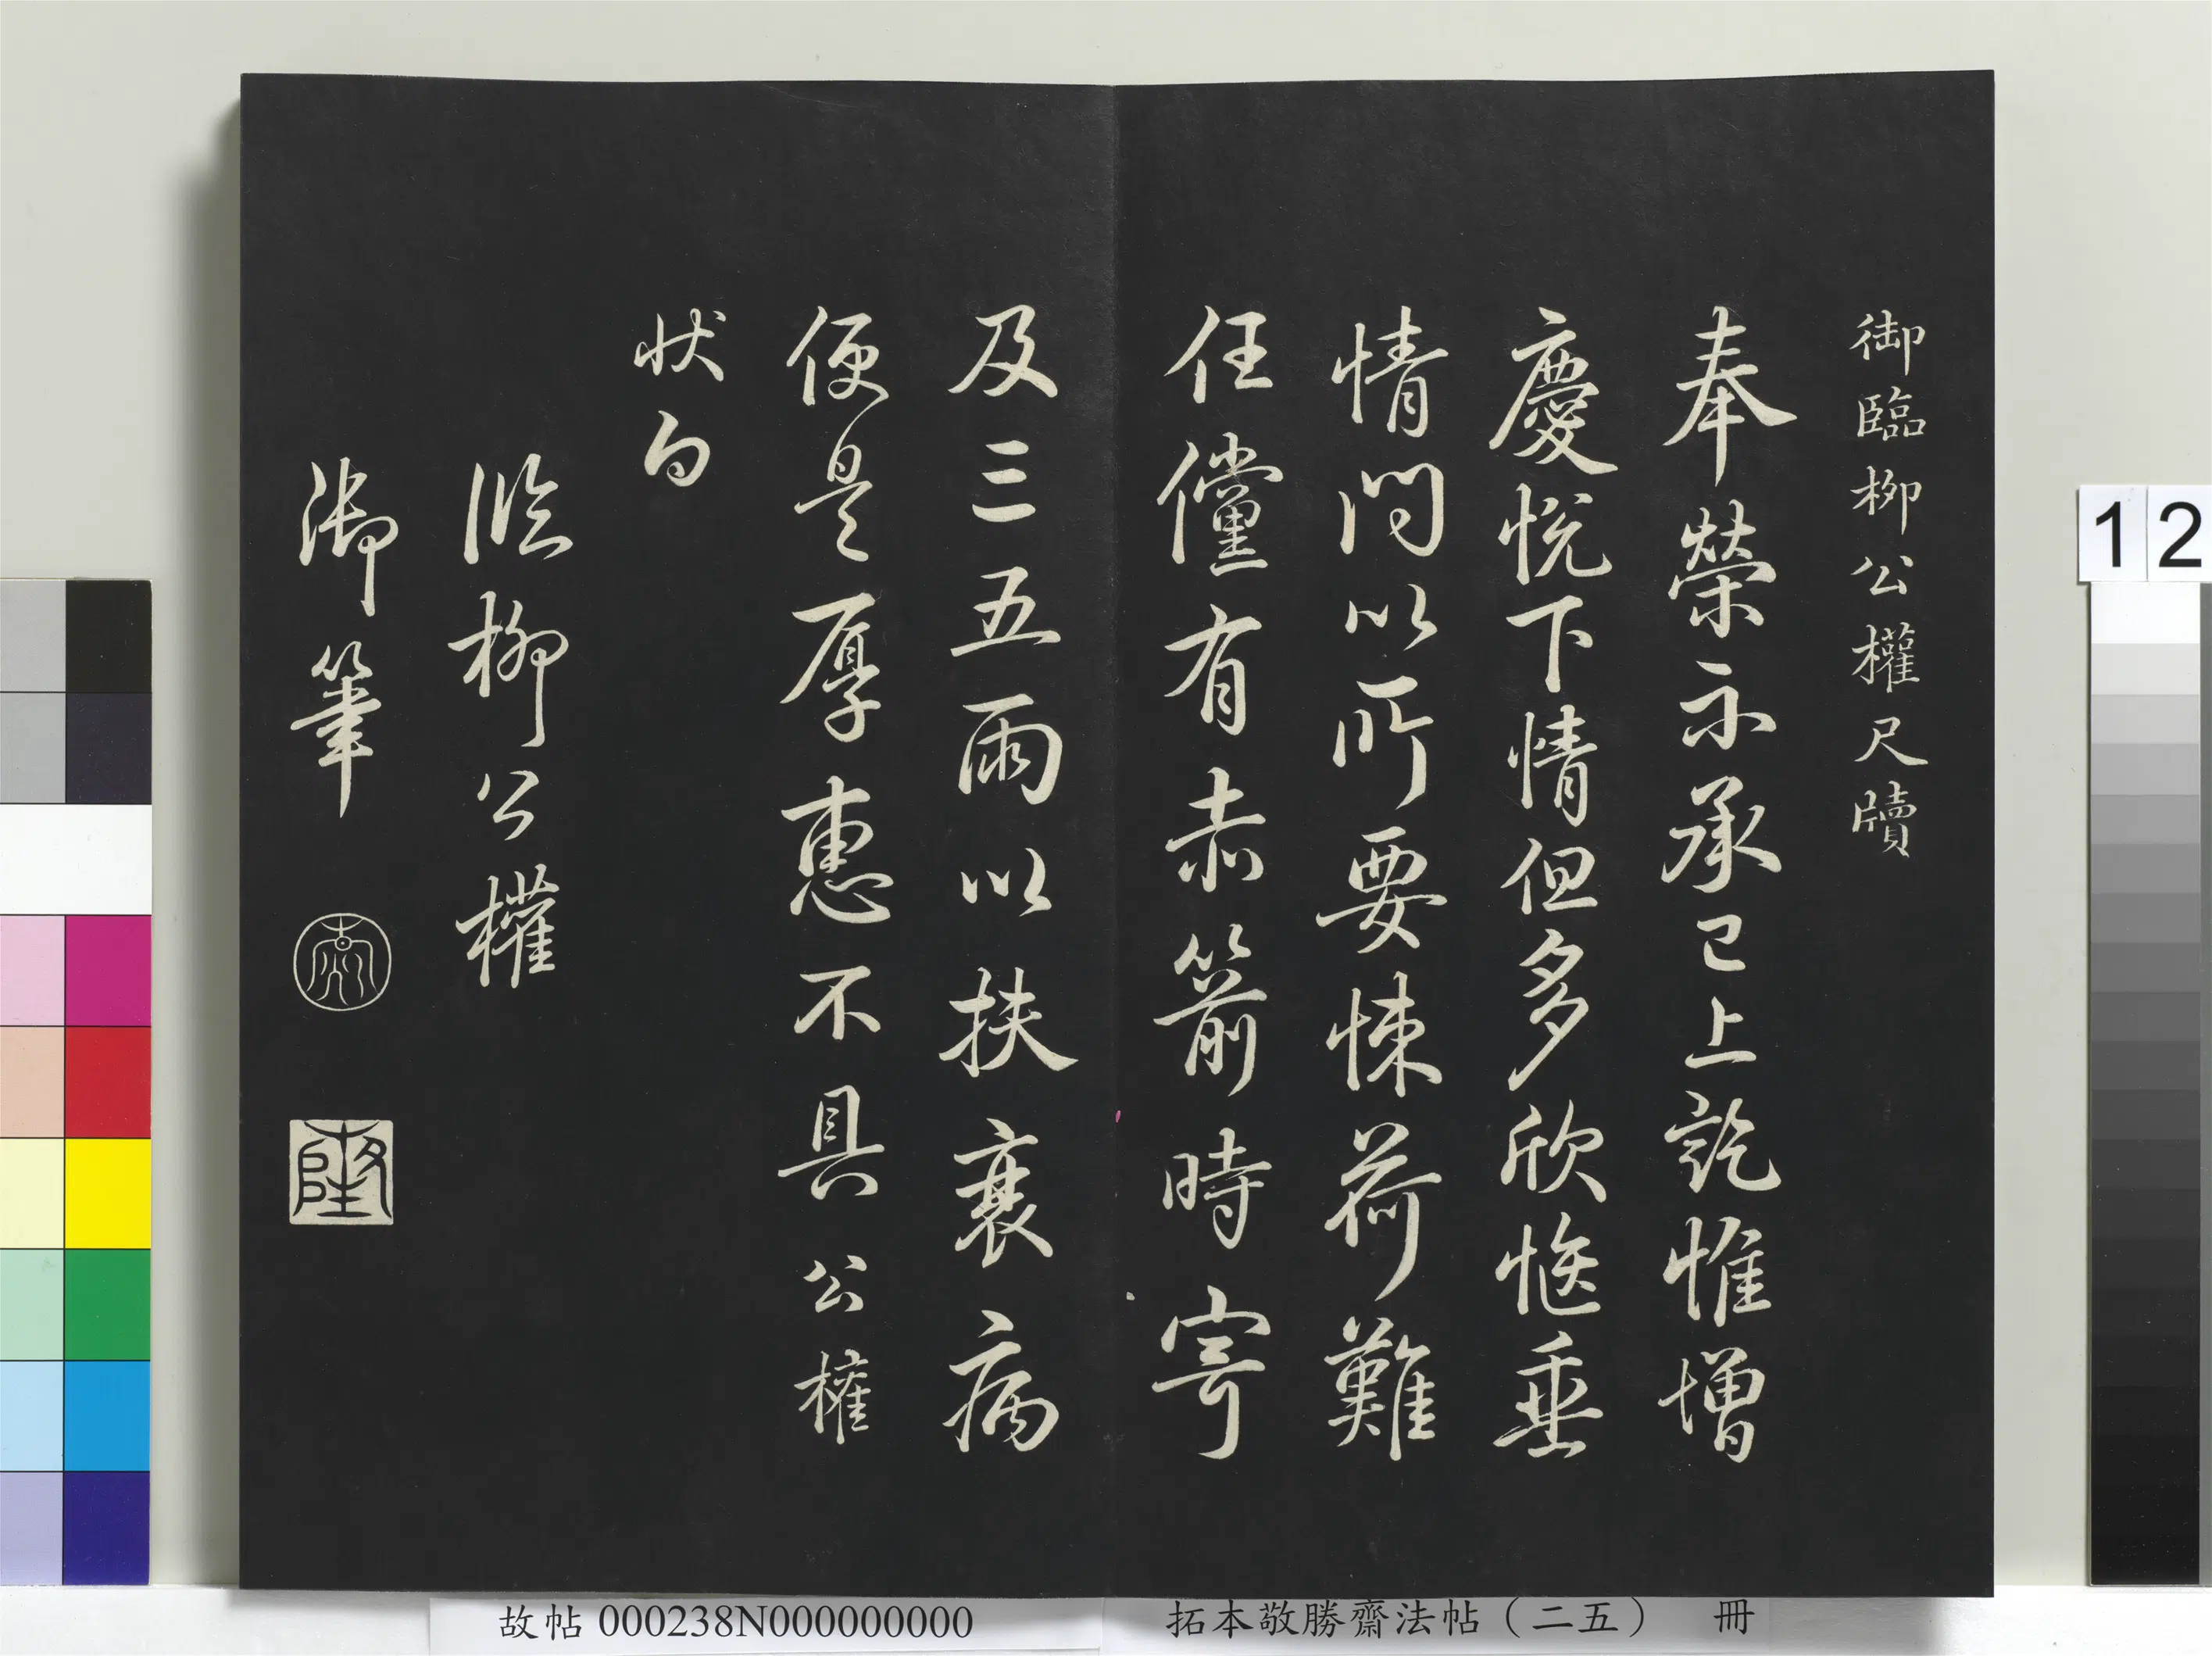 御臨柳公權尺牘
奉榮示承已上訖惟增
慶悅下情但多欣愜垂
情問以所要悚荷難
任儻有赤箭時寄
及三五兩以扶衰病
便是厚惠不具公權
狀白
臨柳公權
御筆
乾
隆
12
故帖 000238N000000000
拓本敬勝齋法帖（二五） 冊